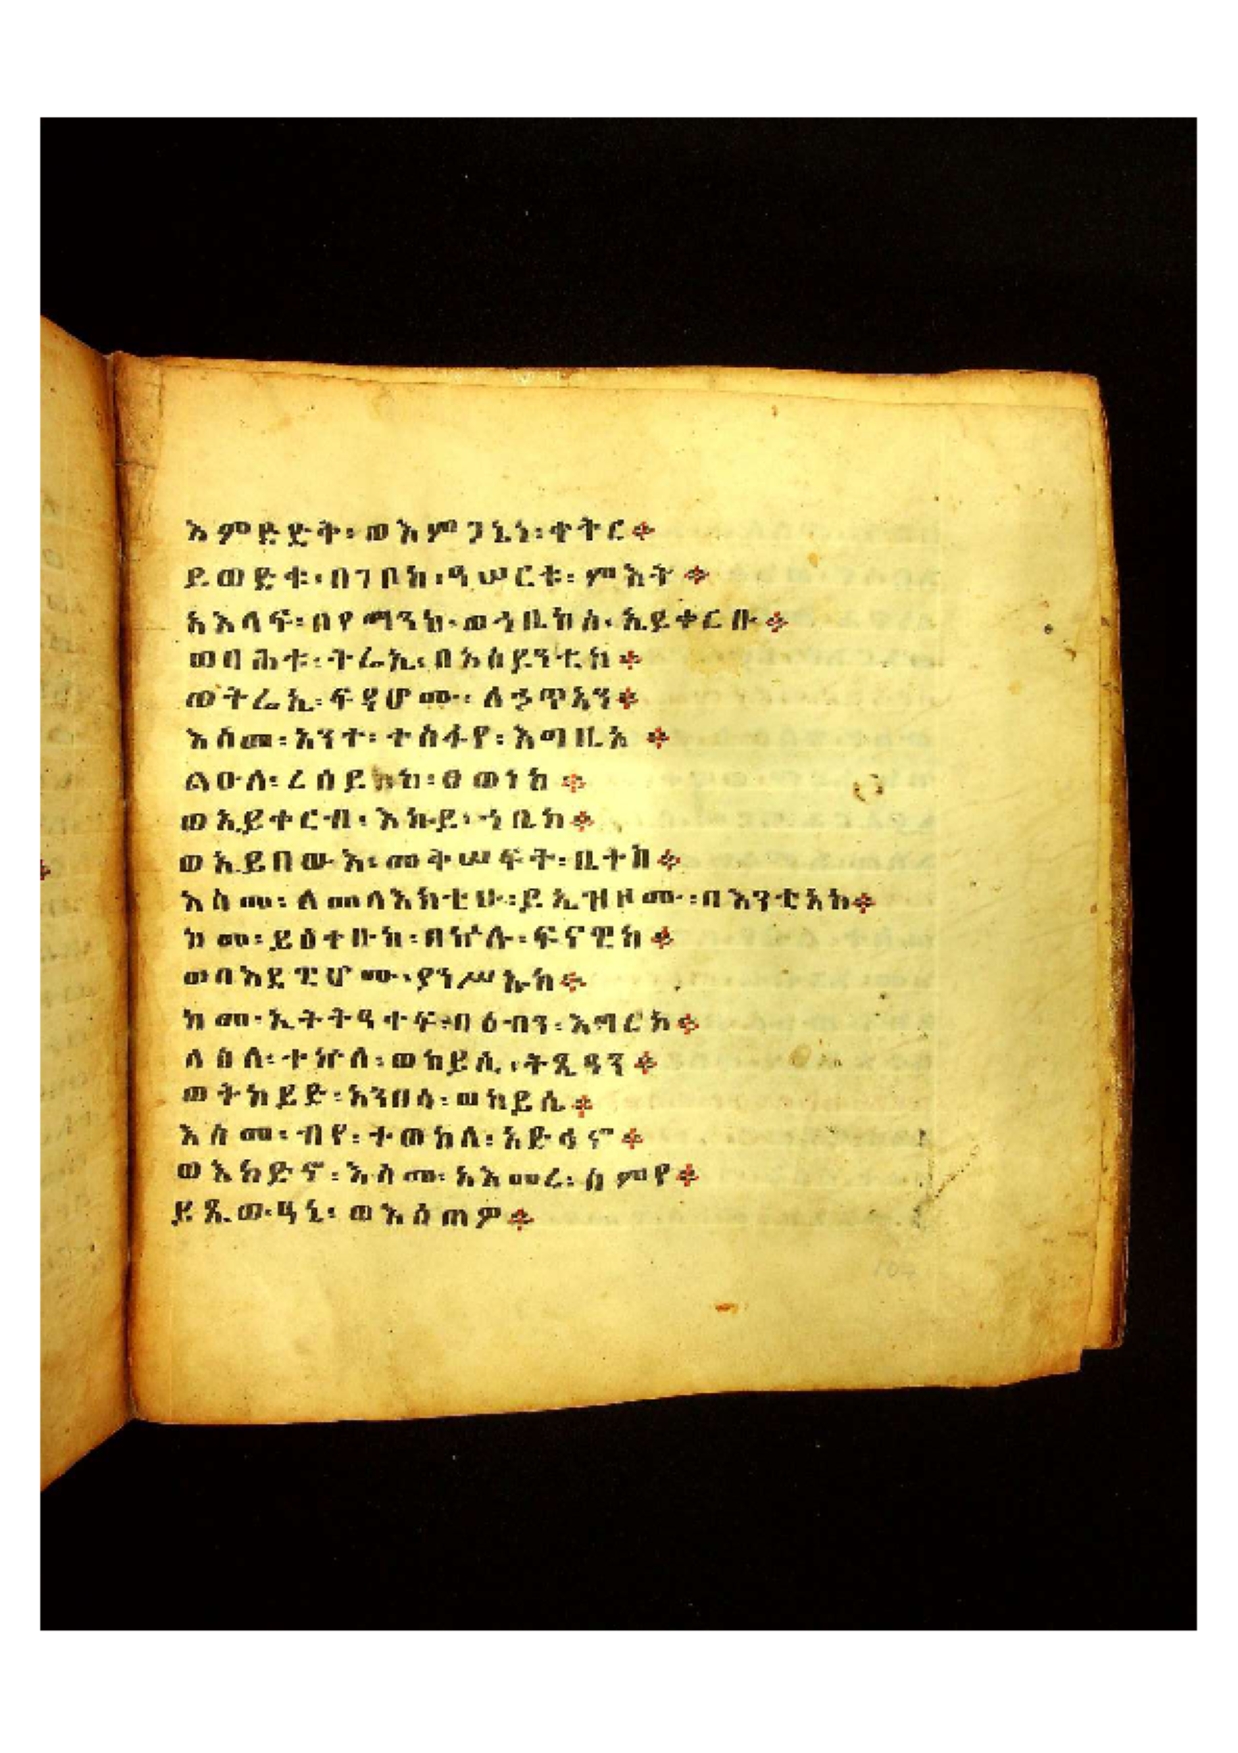 እምድድቅ፡ ወእምጋኔነ፡ ቀትር፨
ይወድቁ፡ በገቦከ፡ ዓሠርቱ፡ ምእት፨
አእላፍ፡ በየማንከ፡ ወኀቤከሰ፡ ኢይቀርቡ፨
ወባሕቱ፡ ትሬኢ፡ በአዕይንቲከ፨
ወትሬኢ፡ ፍዳሆሙ፡ ለኃጥኣን፨
እስመ፡ አንተ፡ ተስፋየ፡ እግዚአ፨
ልዑለ፡ ረሰይከ፡ ፀወነከ፨
ወኢይቀርብ፡ እኩይ፡ ኀቤከ፨
ወኢይበውእ፡ መቅሠፍት፡ ቤተከ፨
እስመ፡ ለመላእክቲሁ፡ ይኤዝዞሙ፡ በእንቲአከ፨
ከመ፡ ይዕቀቡከ፡ በኵሉ፡ ፍናዊከ፨
ወበእደዊሆሙ፡ ያንሥኡከ፨
ከመ፡ ኢትትዓቀፍ፡ በዕብን፡ እግርከ፨
ላዕለ፡ ተኵላ፡ ወከይሲ፡ ትጼዓን፨
ወትከይድ፡ አንበሳ፡ ወከይሴ፨
እስመ፡ ብየ፡ ተወከለ፡ አድኅኖ፨
ወእከድኖ፡ እስመ፡ አእመረ፡ ስምየ፨
ይጼውዓኒ፡ ወእሰጠዎ፨